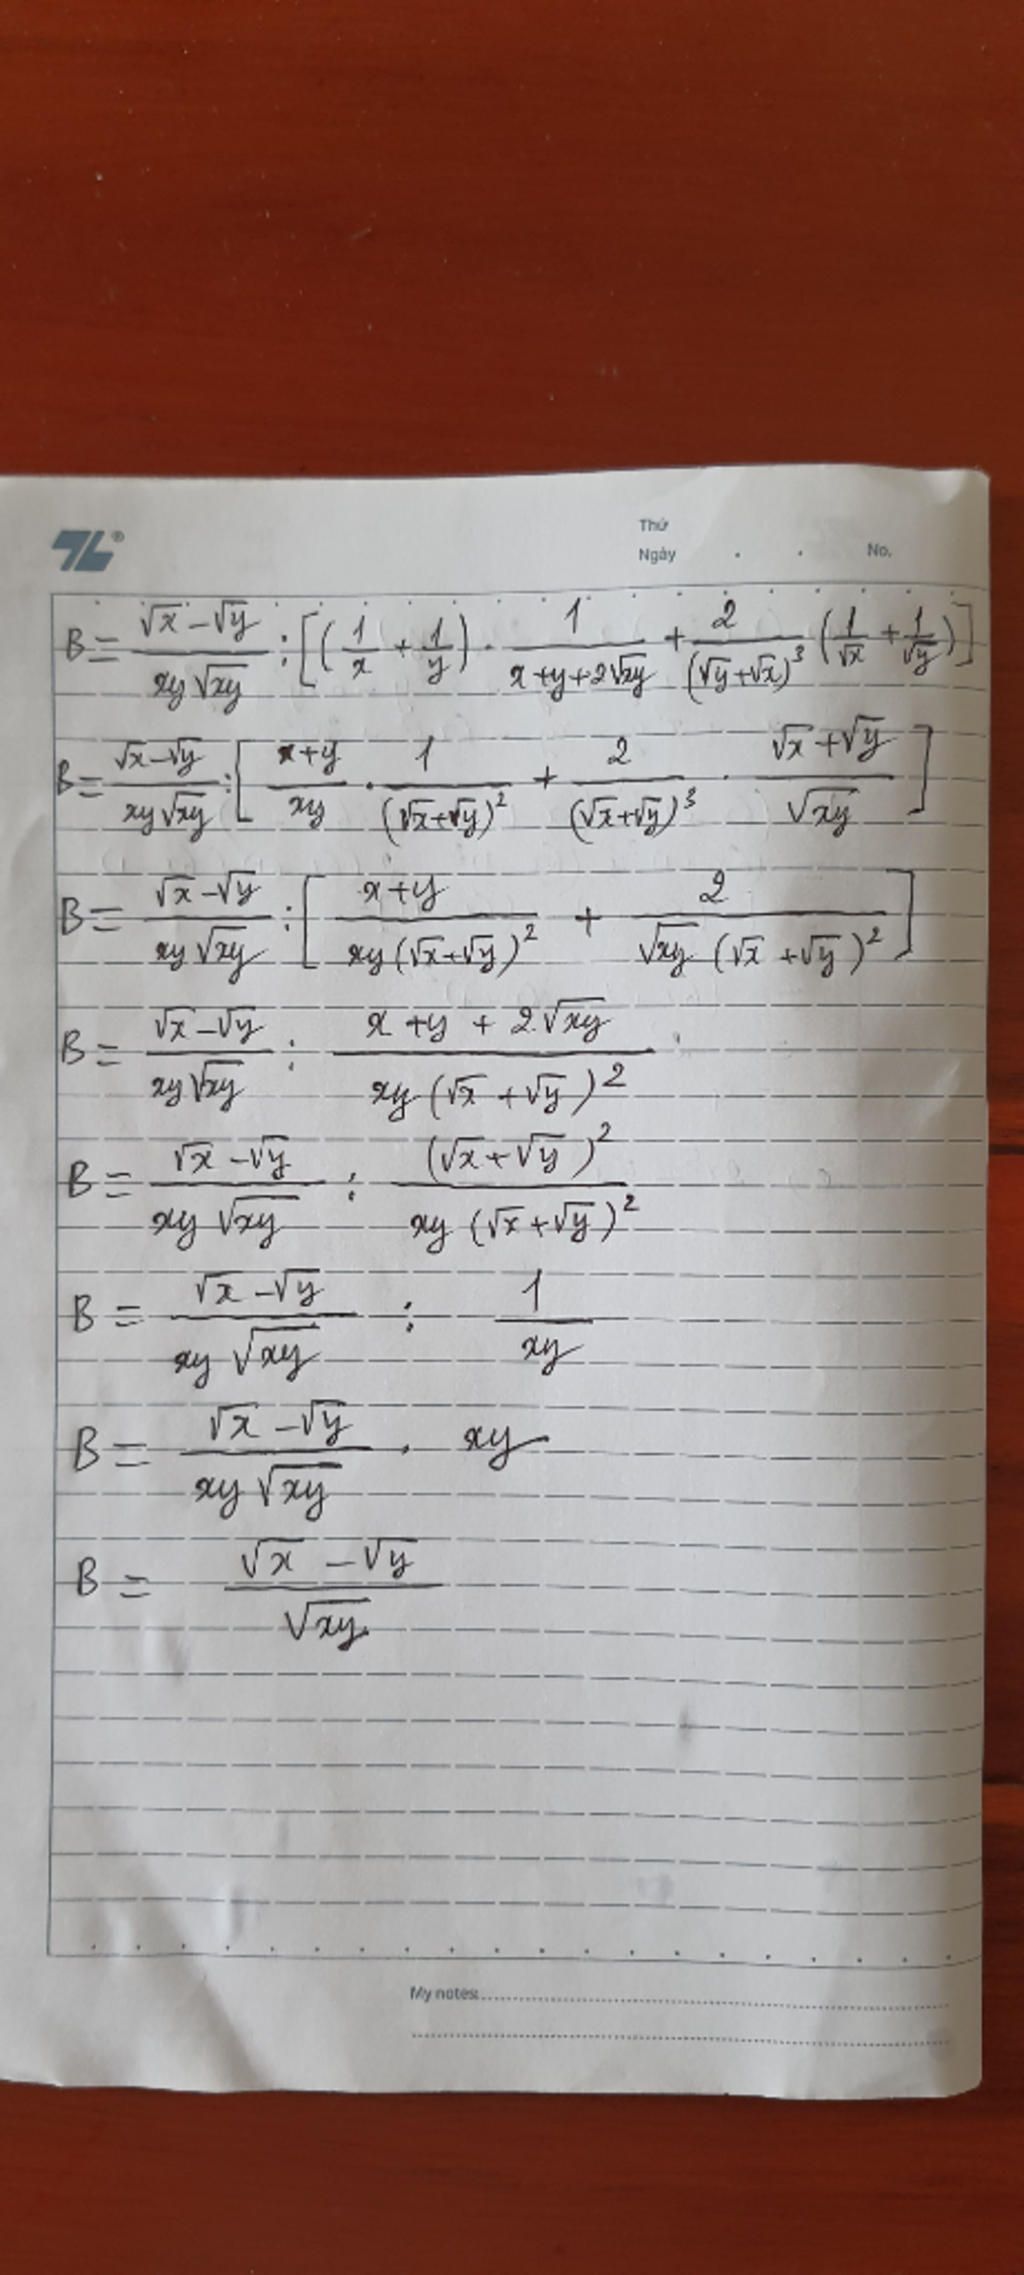 Thứ
Ngày . . No.
B = \frac{\sqrt{x} - \sqrt{y}}{xy\sqrt{xy}} : [(\frac{1}{x} + \frac{1}{y}) \cdot \frac{1}{x+y+2\sqrt{xy}} + \frac{2}{(\sqrt{y}+\sqrt{x})^3} (\frac{1}{\sqrt{x}} + \frac{1}{\sqrt{y}})]
B = \frac{\sqrt{x} - \sqrt{y}}{xy\sqrt{xy}} : [\frac{x+y}{xy} \cdot \frac{1}{(\sqrt{x}+\sqrt{y})^2} + \frac{2}{(\sqrt{x}+\sqrt{y})^3} \cdot \frac{\sqrt{x}+\sqrt{y}}{\sqrt{xy}}]
B = \frac{\sqrt{x} - \sqrt{y}}{xy\sqrt{xy}} : [\frac{x+y}{xy(\sqrt{x}+\sqrt{y})^2} + \frac{2}{\sqrt{xy}(\sqrt{x}+\sqrt{y})^2}]
B = \frac{\sqrt{x} - \sqrt{y}}{xy\sqrt{xy}} : \frac{x+y+2\sqrt{xy}}{xy(\sqrt{x}+\sqrt{y})^2}
B = \frac{\sqrt{x} - \sqrt{y}}{xy\sqrt{xy}} : \frac{(\sqrt{x}+\sqrt{y})^2}{xy(\sqrt{x}+\sqrt{y})^2}
B = \frac{\sqrt{x} - \sqrt{y}}{xy\sqrt{xy}} : \frac{1}{xy}
B = \frac{\sqrt{x} - \sqrt{y}}{xy\sqrt{xy}} \cdot xy
B = \frac{\sqrt{x} - \sqrt{y}}{\sqrt{xy}}
My notes: